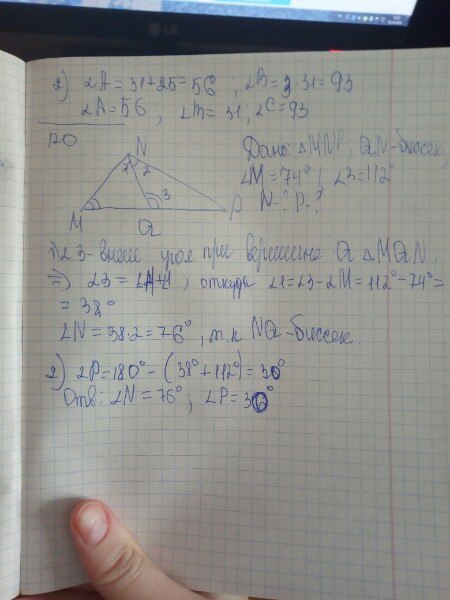 LG
2) ∠A = 31+25=56 , ∠B= 3·31=93
∠A=56, ∠B= 31, ∠C=93
120
N
1 2
3
M
Q
P
Дано: ΔMNP, QN-биссек,
∠M=74°, ∠3=112°
N-? P-?
1) ∠3- внеш угол при вершине Q ΔMQN,
⇒ ∠3 = , откуда ∠1=∠3-∠M=112°-74°=
= 38°
∠N=38·2=76°, т.к NQ-биссек
2) ∠P=180°-(38°+112°)=30°
Отв: ∠N=76°; ∠P=30°